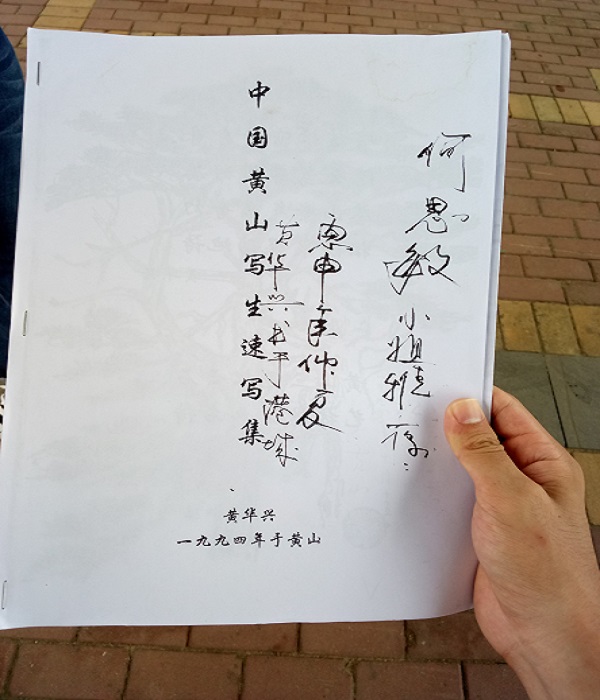 何思敏小姐雅
申年仲夏
黄华兴书于港城
中国黄山写生速写集
黄华兴
一九九四年于黄山